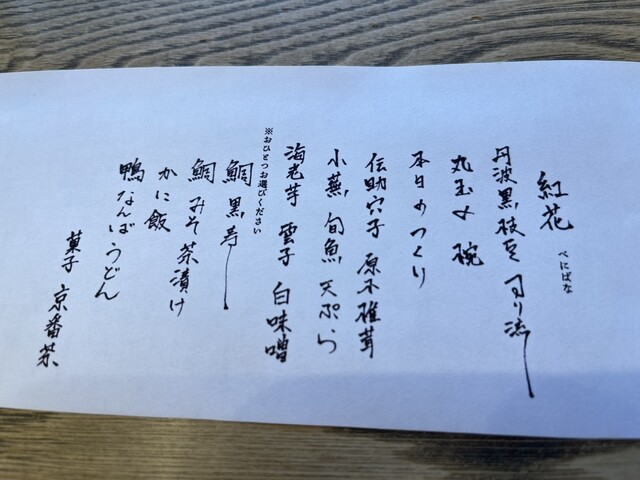 紅花 べにばな
丹波黒枝豆 すり流し
丸玉〆 碗
本日のつくり
伝助穴子 原木椎茸
小蕪 旬魚 天ぷら
海老芋 雲子 白味噌
※おひとつお選びください
鯛 黒寿し
鯛みそ茶漬け
かに飯
鴨なんばうどん
菓子 京番茶